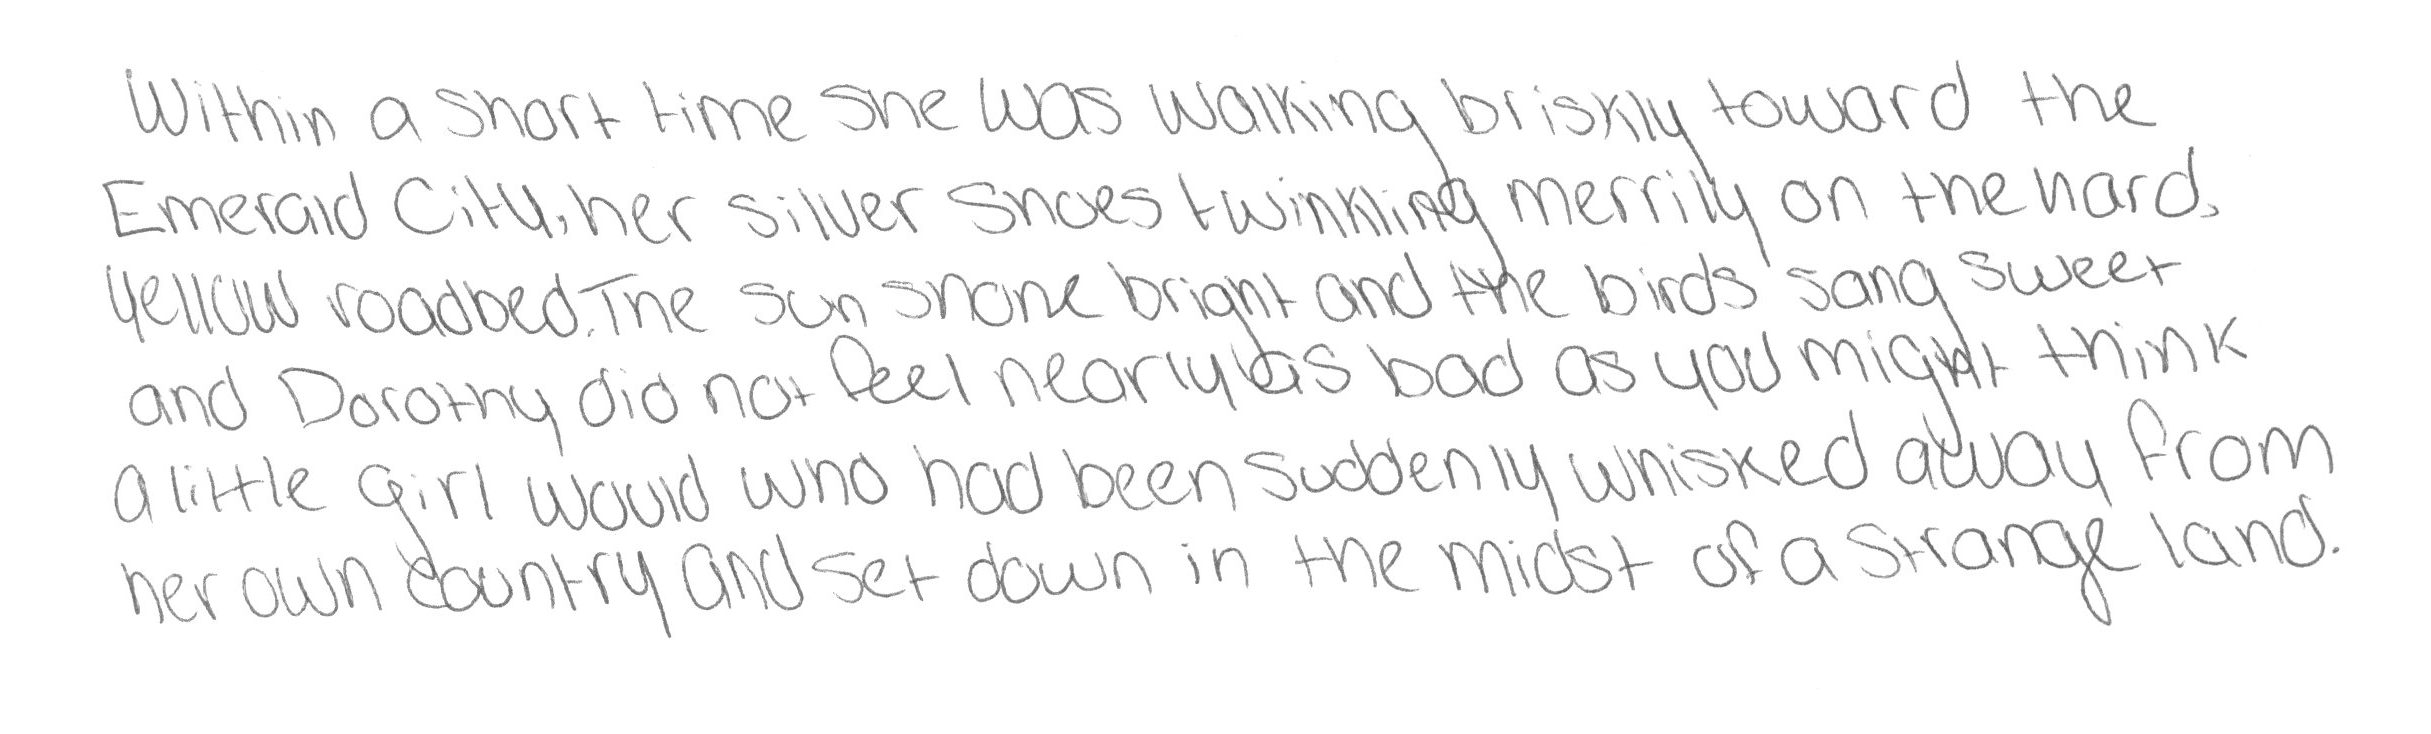 Within a short time she was walking briskly toward the
Emerald City, her silver shoes twinkling merrily on the hard,
yellow roadbed. The sun shone bright and the birds sang sweet
and Dorothy did not feel nearly as bad as you might think
a little girl would who had been suddenly whisked away from
her own country and set down in the midst of a strange land.